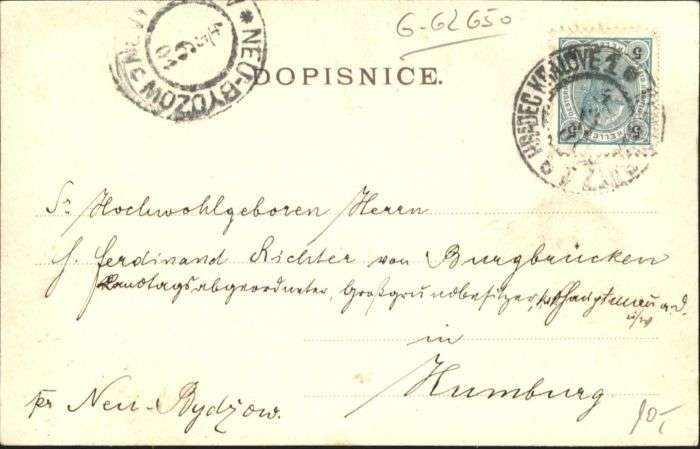 G-62650
* NEU-BYDŽOW *
DOPISNICE.
HRADEC KRÁLOVÉ 1
5 HELLER 5
Sr. Hochwohlgeboren Herrn
H. Ferdinand Richter von Burgbrücken
Landtagsabgeordneter, Großgrundbesitzer, k.k. Hauptmann a. d.
usw
in
Humburg
per Neu-Bydžow.
90,-